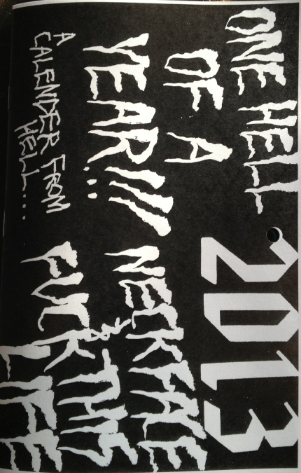 ONE HELL
OF A
YEAR!!!..
A
CALENDER FROM
HELL...
2013
NECKFACE
&
FUCK THIS
LIFE